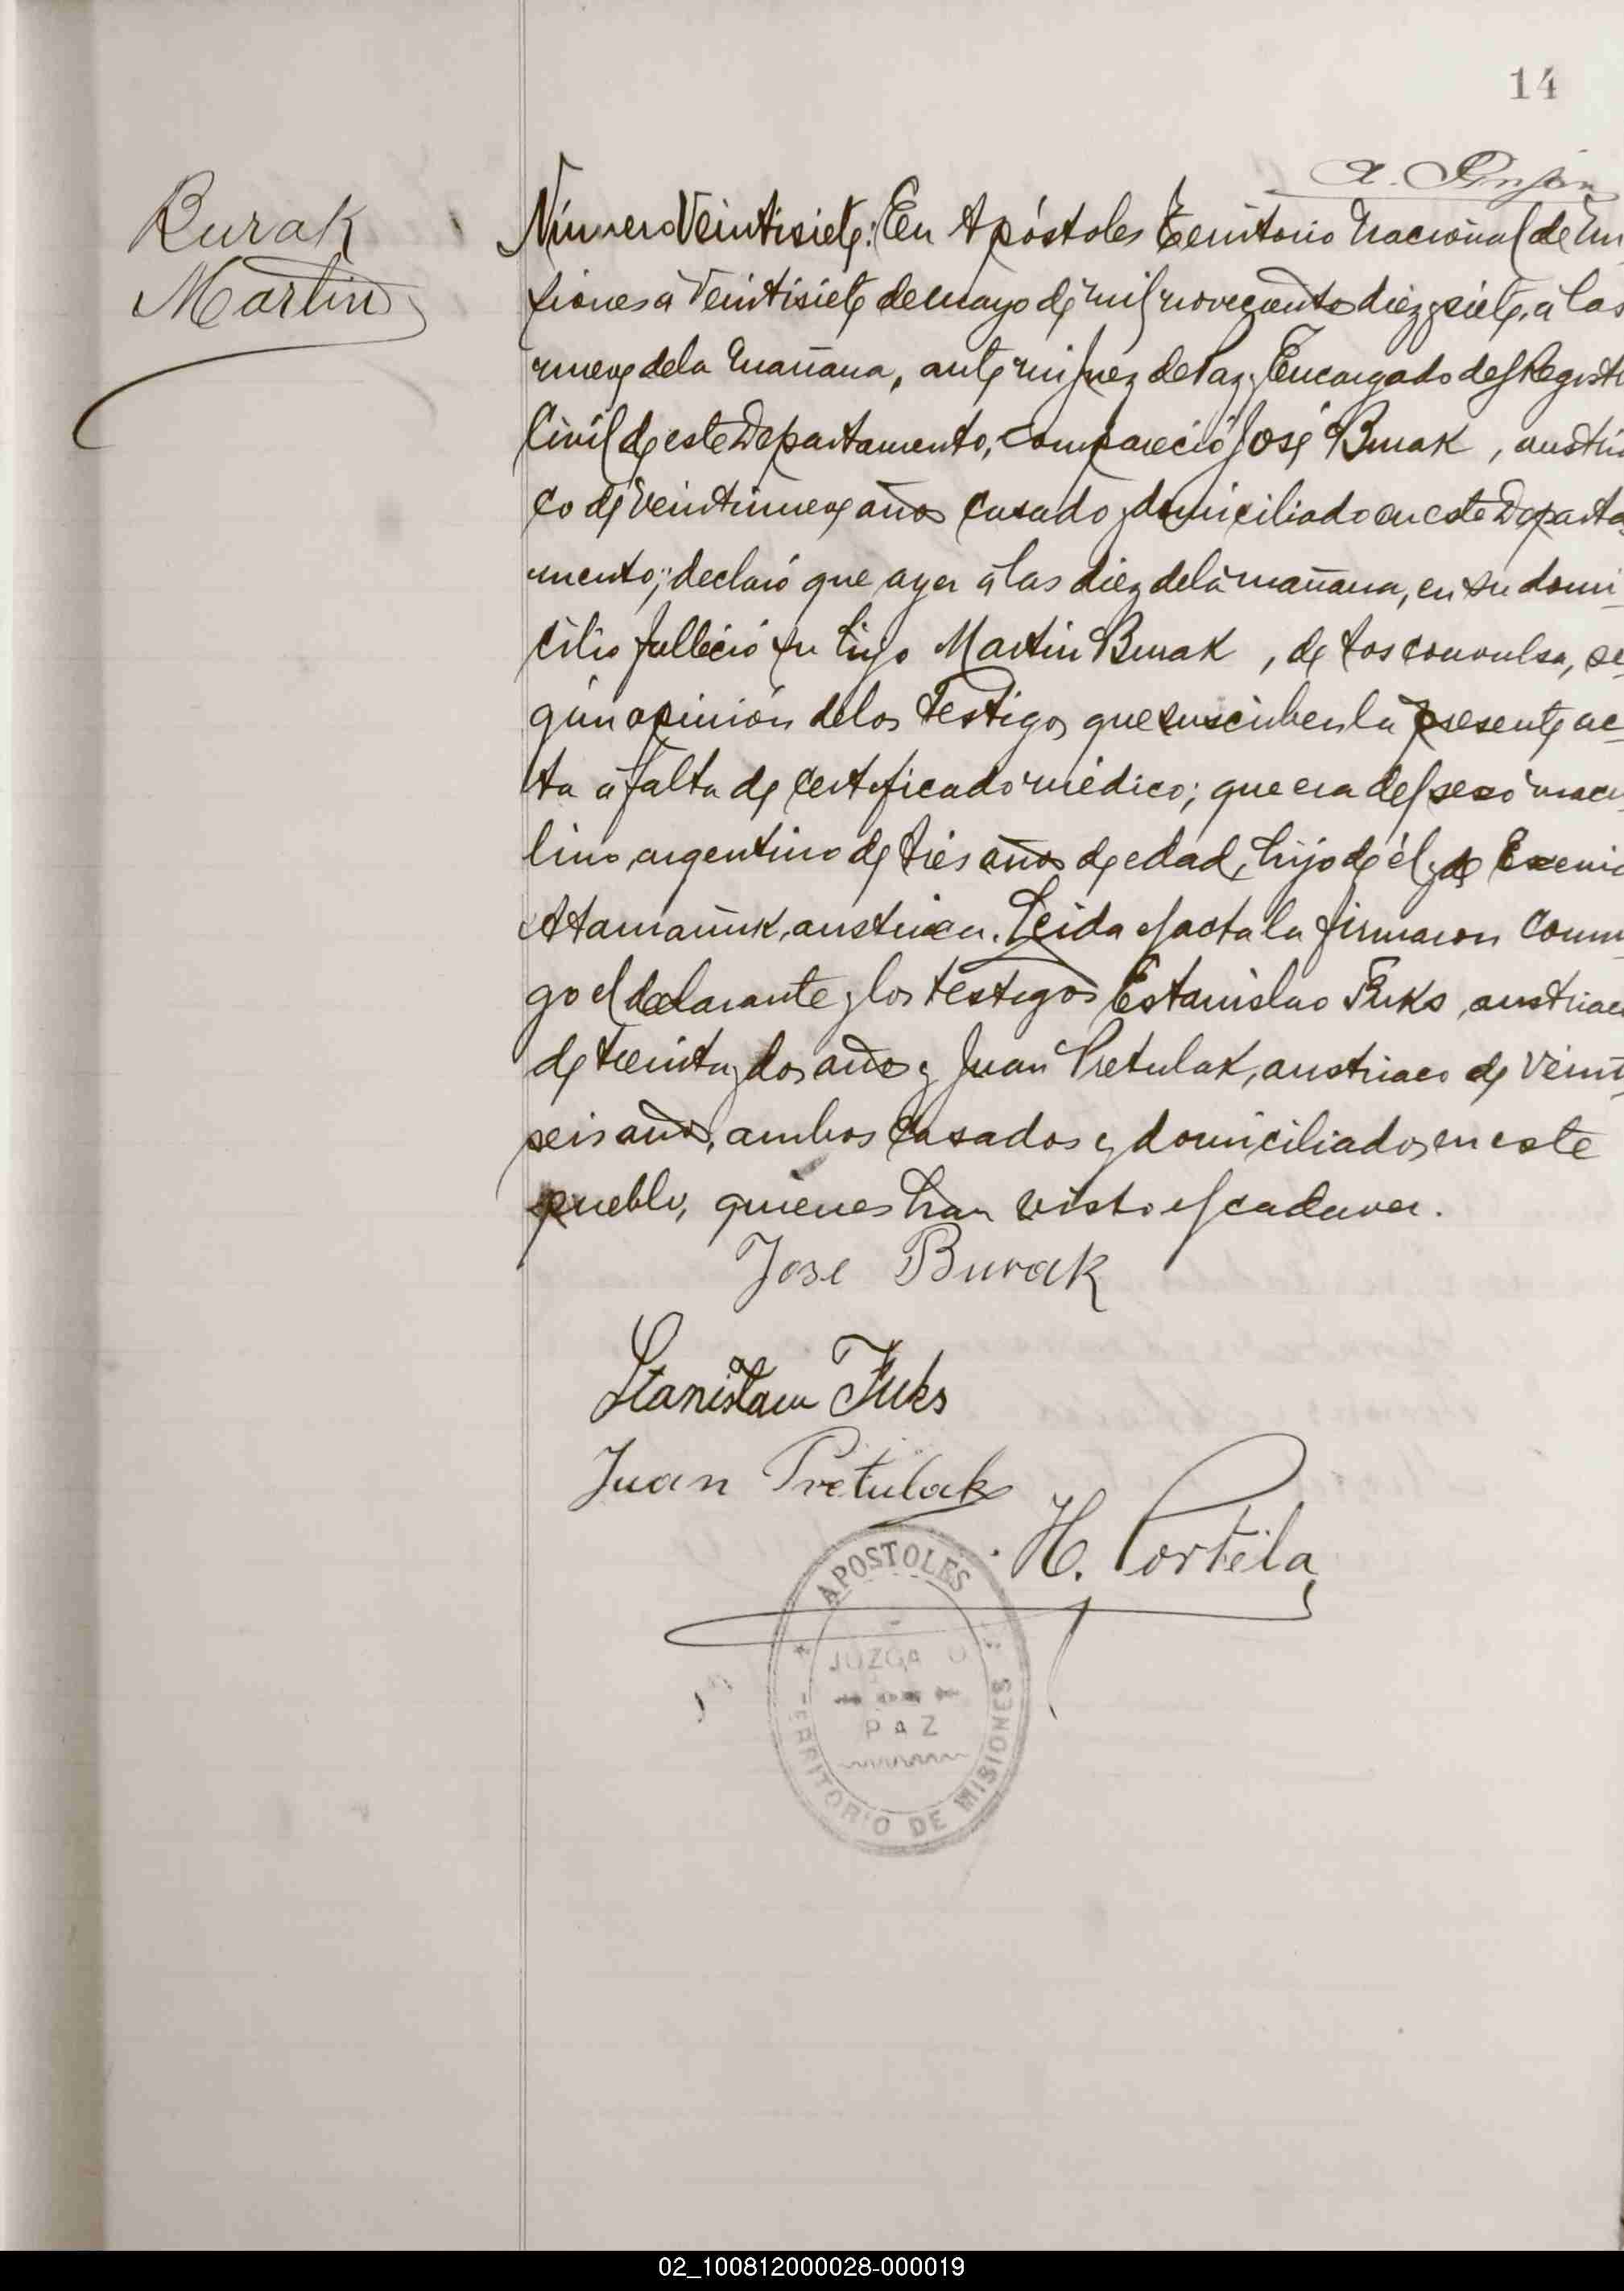 14
Burak
Martin
Número Veintisiete: En Apóstoles Territorio Nacional de Mi
siones a veintisiete de mayo de mil novecientos diez y siete, á las
nueve de la mañana, ante mi Juez de Paz y Encargado del Registr
Civil de este Departamento, compareció José Burak, austria
co de veintinueve años casado y domiciliado en este Departa
mento; declaró que ayer á las diez de la mañana, en su domi
cilio falleció su hijo Martin Burak, de tos convulsa, se
gún opinión de los testigos que suscriben la presente ac
ta á falta de certificado médico; que era del sexo mascu
lino, argentino de tres años de edad, hijo de él y de
Atamañuk, austriaca. Leida el acta la firmaron conmi
go el declarante y los testigos Estanislao Fuks, austriaco
de treinta y dos años y Juan Pretulak, austriaco de veinti
seis años, ambos casados y domiciliados en este
pueblo, quienes han visto el cadaver.
Jose Burak
Stanisław Fuks
Juan Pretulak
H. Portela
APOSTOLES
JUZGA O
PAZ
ERRITORIO DE MISIONES
02_100812000028-000019